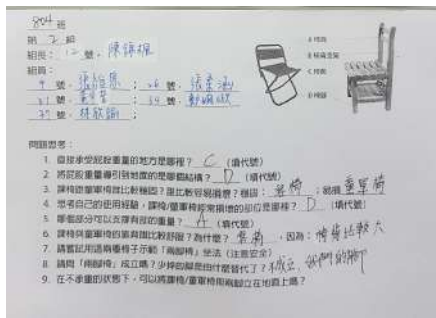 804 班
第 2 組
A 椅背
組長: 12 號,陳
B 椅背支架
組員:
C 椅面
9 號,張 ; 26 號,張
D 椅腳
31 號, ; 34 號,
37 號,林 ;
問題思考:
1. 直接承受屁股重量的地方是哪裡? C (填代號)
2. 將屁股重量導引到地面的是哪個結構? D (填代號)
3. 課椅跟童軍椅誰比較穩固?誰比較容易損壞?穩固: 課椅 ;易損 童軍椅
4. 思考自己的使用經驗,課椅/童軍椅經常損壞的部位是哪裡? D (填代號)
5. 哪個部分可以支撐背部的重量? A (填代號)
6. 課椅與童軍椅的靠背誰比較舒服?為什麼? 課椅 ,因為: 椅背比較大
7. 請嘗試用這兩種椅子示範「兩腳椅」坐法(注意安全)
8. 請問「兩腳椅」成立嗎?少掉的腳是由什麼替代了?不成立,我們的腳
9. 在不承重的狀態下,可以將課椅/童軍椅用兩腳立在地面上嗎?